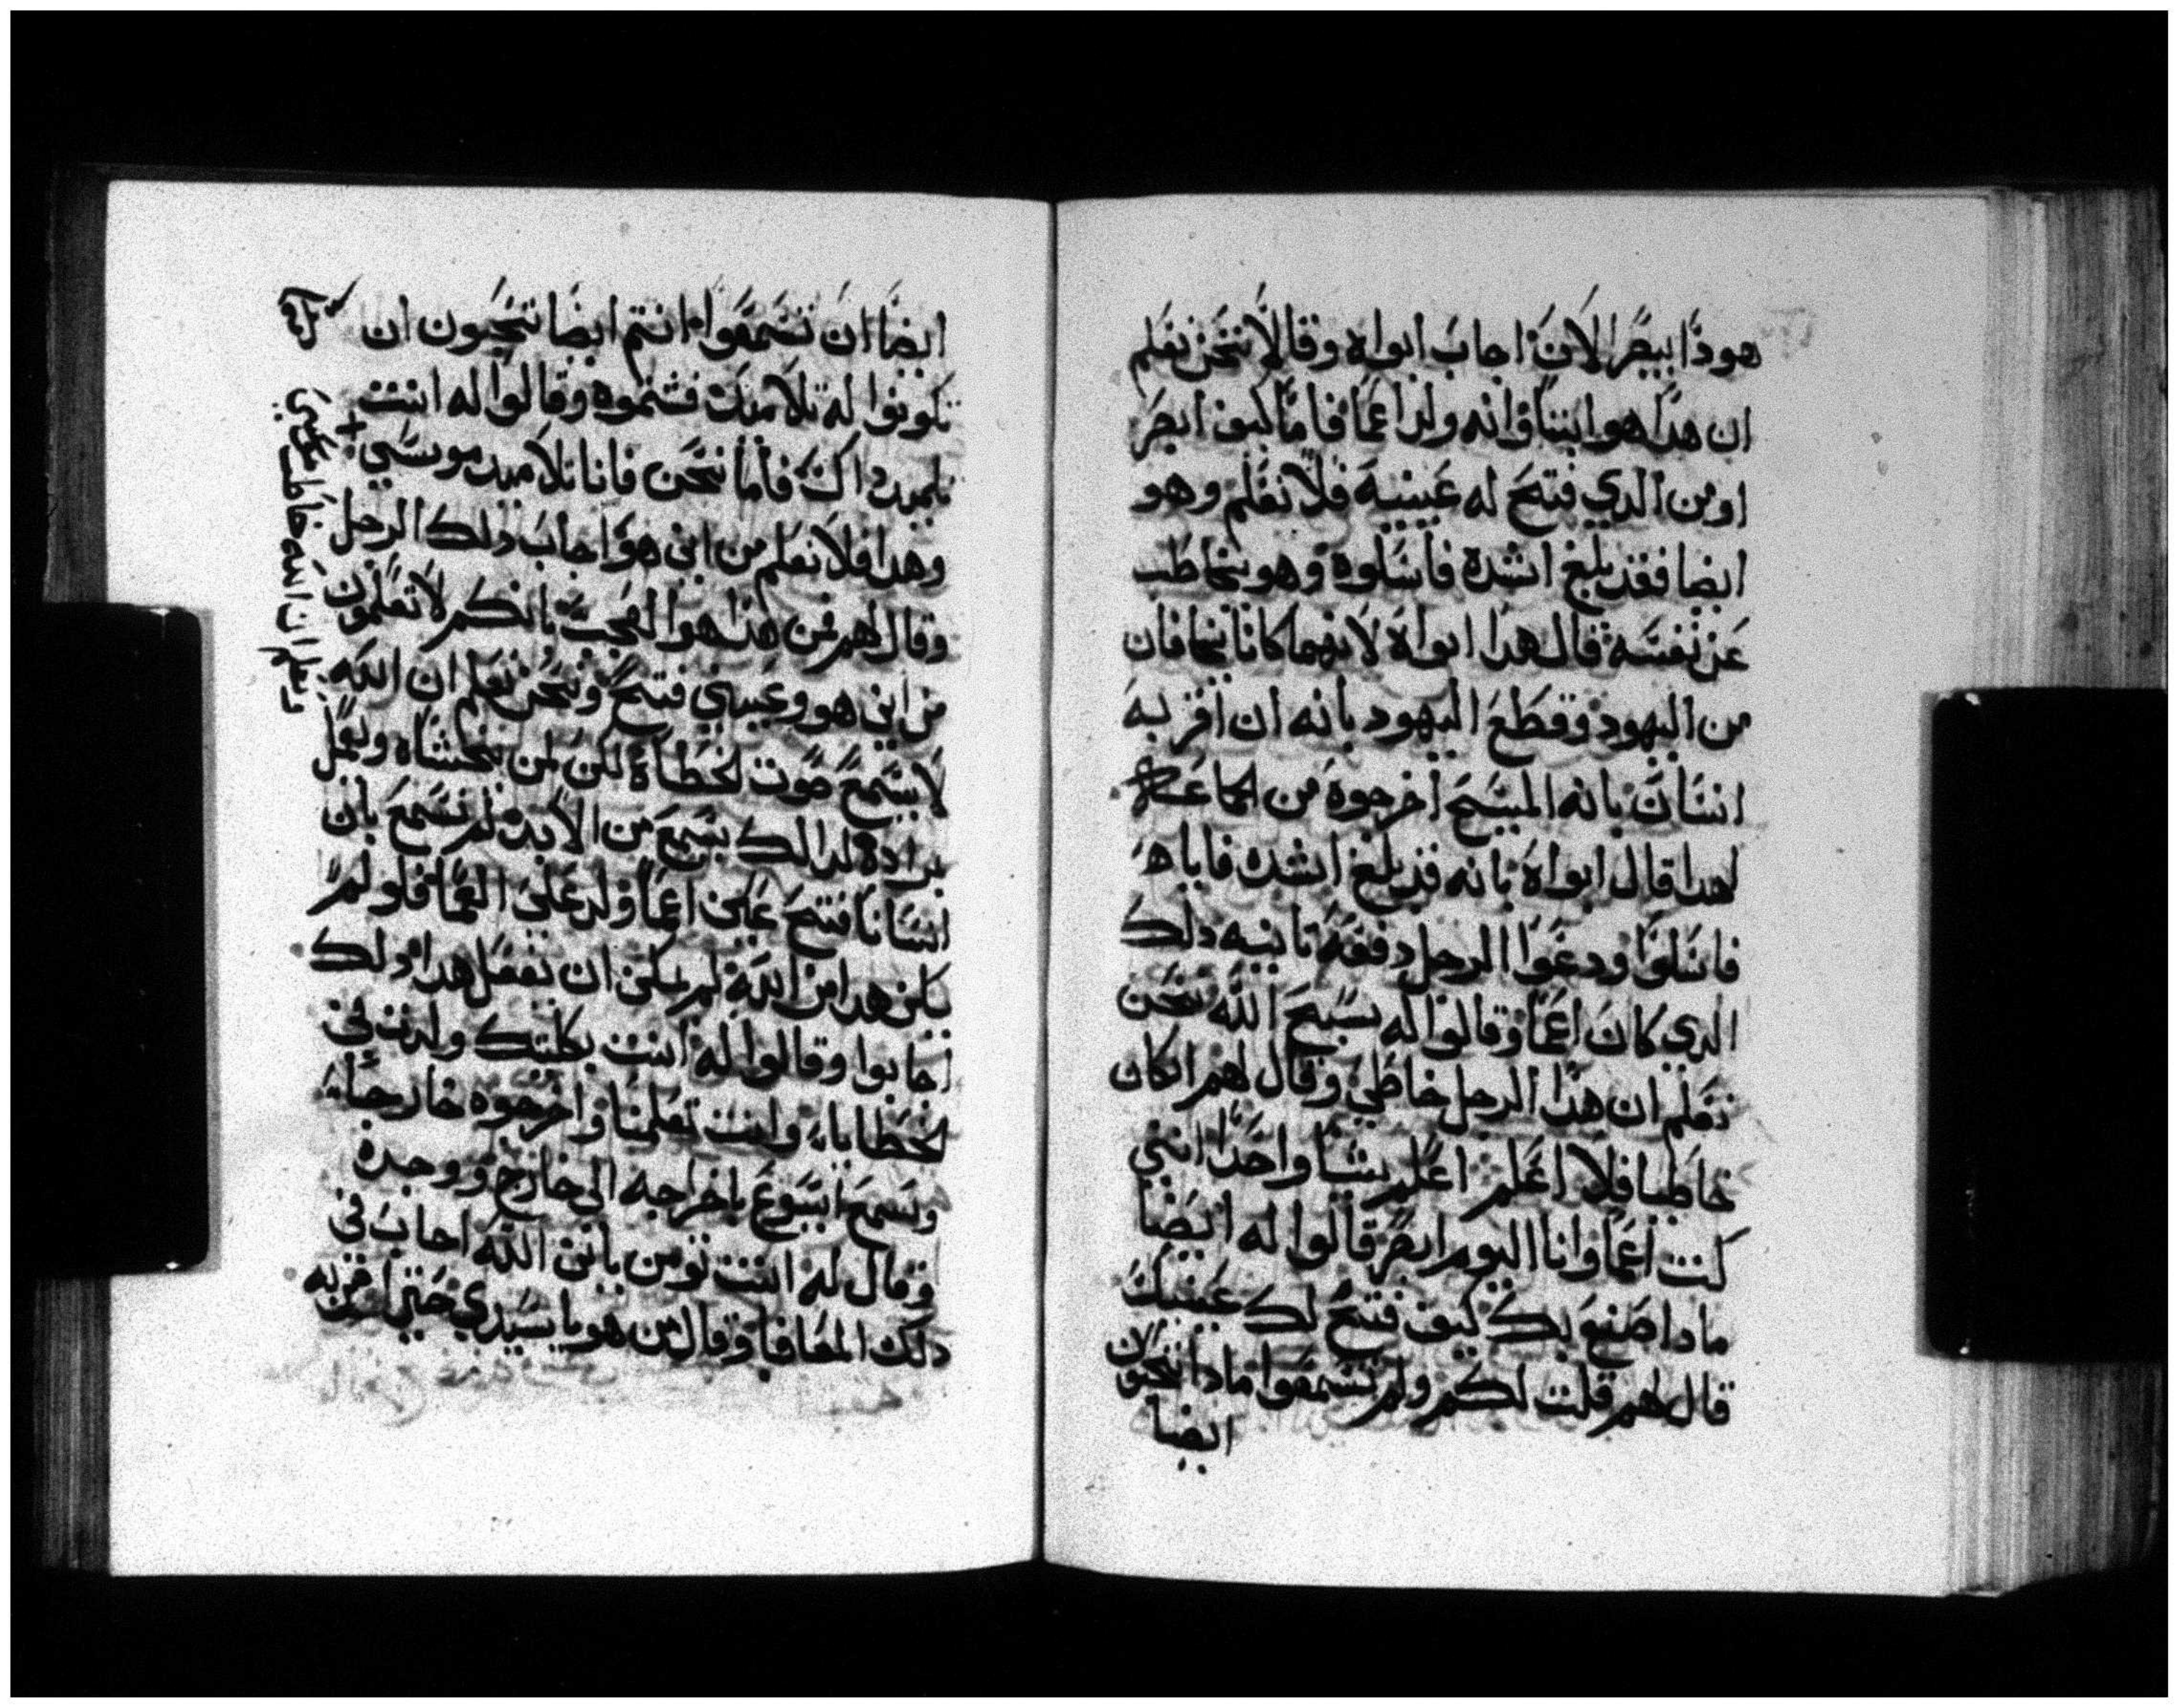 هوذا يبصر الان اجاب ابواه وقالا نحن نعلم
ان هدا هو ابننا وانه ولد اعما فاما كيف ابصر
او من الدي فتح له عينيه فلا نعلم وهو
ايضا فقد بلغ اشده فاسلوه وهو يخاطب
عن نفسه قال هدا ابواه لانهما كانا يخافان
من اليهود وقطع اليهود بانه ان اقر به
انسان بانه المسيح اخرجوه من الجماعه
لهدا قال ابواه بانه قد بلغ اشده فاياه
فاسلوا ودعوا الرجل دفعه تانيه دلك
الدي كان اعما وقالوا له سبح الله نحن
نعلم ان هدا الرجل خاطي وقال لهم ان كان
خاطيا فلا اعلم اعلم شيا واحدا انني
كنت اعما وانا اليوم ابصر قالوا له ايضا
مادا صنع بك كيف فتح لك عينيك
قال لهم قلت لكم ولم تسمعوا مادا تحبون الان
ايضا
ايضا ان تسمعوا انتم ايضا تحبون ان
تكونوا له تلاميد فشتموه وقالوا له انت
تلميد داك فاما نحن فانا تلاميد موسي
وهدا فلا نعلم من اين هو اجاب دلك الرجل
وقال لهم من هدا هو العجب بانكم لا تعلمون
من اين هو وعيني فتح ونحن نعلم ان الله
لا يسمع صوت الخطاة لكن لمن يخشاه ويعمل
مرادة لدالك يسمع من الابد لم نسمع بان
انسانا فتح عيني اعما ولد علي العما فلو لم
يكن هدا من الله لم يمكن ان يفعل هدا دلك
اجابوا وقالوا له انت بكليتك ولدت في
الخطايا وانت تعلمنا واخرجوه خارجا
وسمع ايسوع باخراجه الي خارج ووجده
وقال له انت تومن بابن الله اجاب في
دلك المعافا وقال من هو يا سيدي حتي اومن به